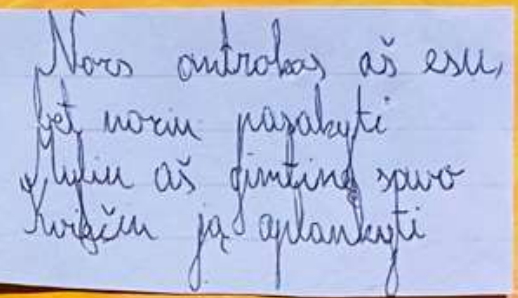 Nors antrokas aš esu,
bet noriu pasakyti
Myliu aš gimtinę savo
Kviečiu ją aplankyti